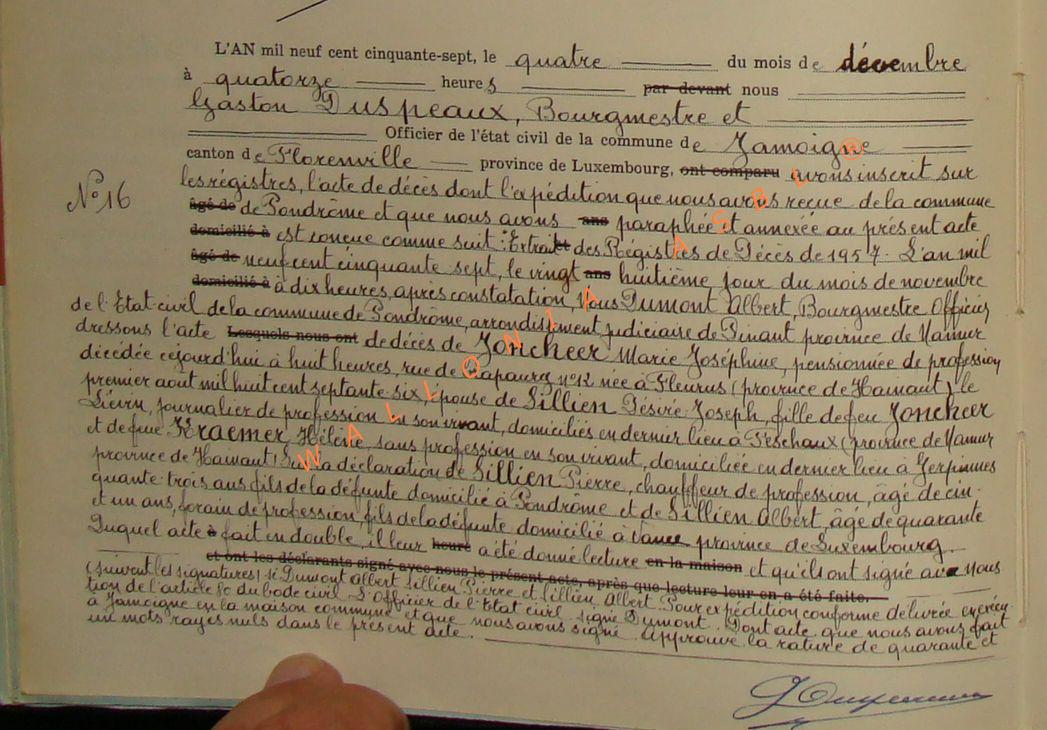 L'AN mil neuf cent cinquante-sept, le quatre du mois de décembre
à quatorze heures par devant nous
Gaston Duspeaux, Bourgmestre et
Officier de l'état civil de la commune de Jamoigne
canton de Florenville province de Luxembourg, ont comparu avons inscrit sur
N° 16
les régistres, l'acte de décès dont l'expédition que nous avons reçue de la commune
âgé de de Pondrôme et que nous avons ans paraphée et annexée au présent acte
domicilié à est conçue comme suit : Extrait des Régistres de Décès de 1957. L'an mil
âgé de neuf cent cinquante sept, le vingt ans huitième jour du mois de novembre
domicilié à à dix heures, après constatation, Nous Dumont Albert, Bourgmestre Officier
de l'Etat-civil de la commune de Pondrôme, arrondissement judiciaire de Dinant province de Namur
dressons l'acte Lesquels nous ont de décès de Joncheer Marie Joséphine, pensionnée de profession
décédée cejourd'hui à huit heures, rue de n° 12 née à Fleurus (province de Hainaut) le
premier août mil huit cent septante-six, épouse de Sillien Désiré Joseph, fille de feu Joncheer
Liévin, journalier de profession en son vivant, domiciliés en dernier lieu à Feschaux (province de Namur
et de feue Kraemer Hélène sans profession en son vivant, domiciliée en dernier lieu à Gerpinnes
province de Hainaut) Sur la déclaration de Sillien Pierre, chauffeur de profession, âgé de cin-
quante-trois ans fils de la défunte domicilié à Pondrôme et de Sillien Albert, âgé de quarante
et un ans, forain de profession, fils de la défunte domicilié à province de Luxembourg.
Duquel acte à fait en double, il leur heure a été donné lecture en la maison et qu'ils ont signé avec nous
et ont les déclarants signé avec nous le présent acte, après que lecture leur en a été faite.
(suivent les signatures) sé Dumont Albert Sillien Pierre et Sillien Albert Pour expédition conforme délivrée exécu-
tion de l'article 80 du Code civil. L'Officier de l'Etat civil signé Dumont. Dont acte que nous avons fait
à Jamoigne en la maison commune et que nous avons signé. Approuvé la rature de quarante et
un mots rayés nuls dans le présent acte.
WALLONIA ASBL ®